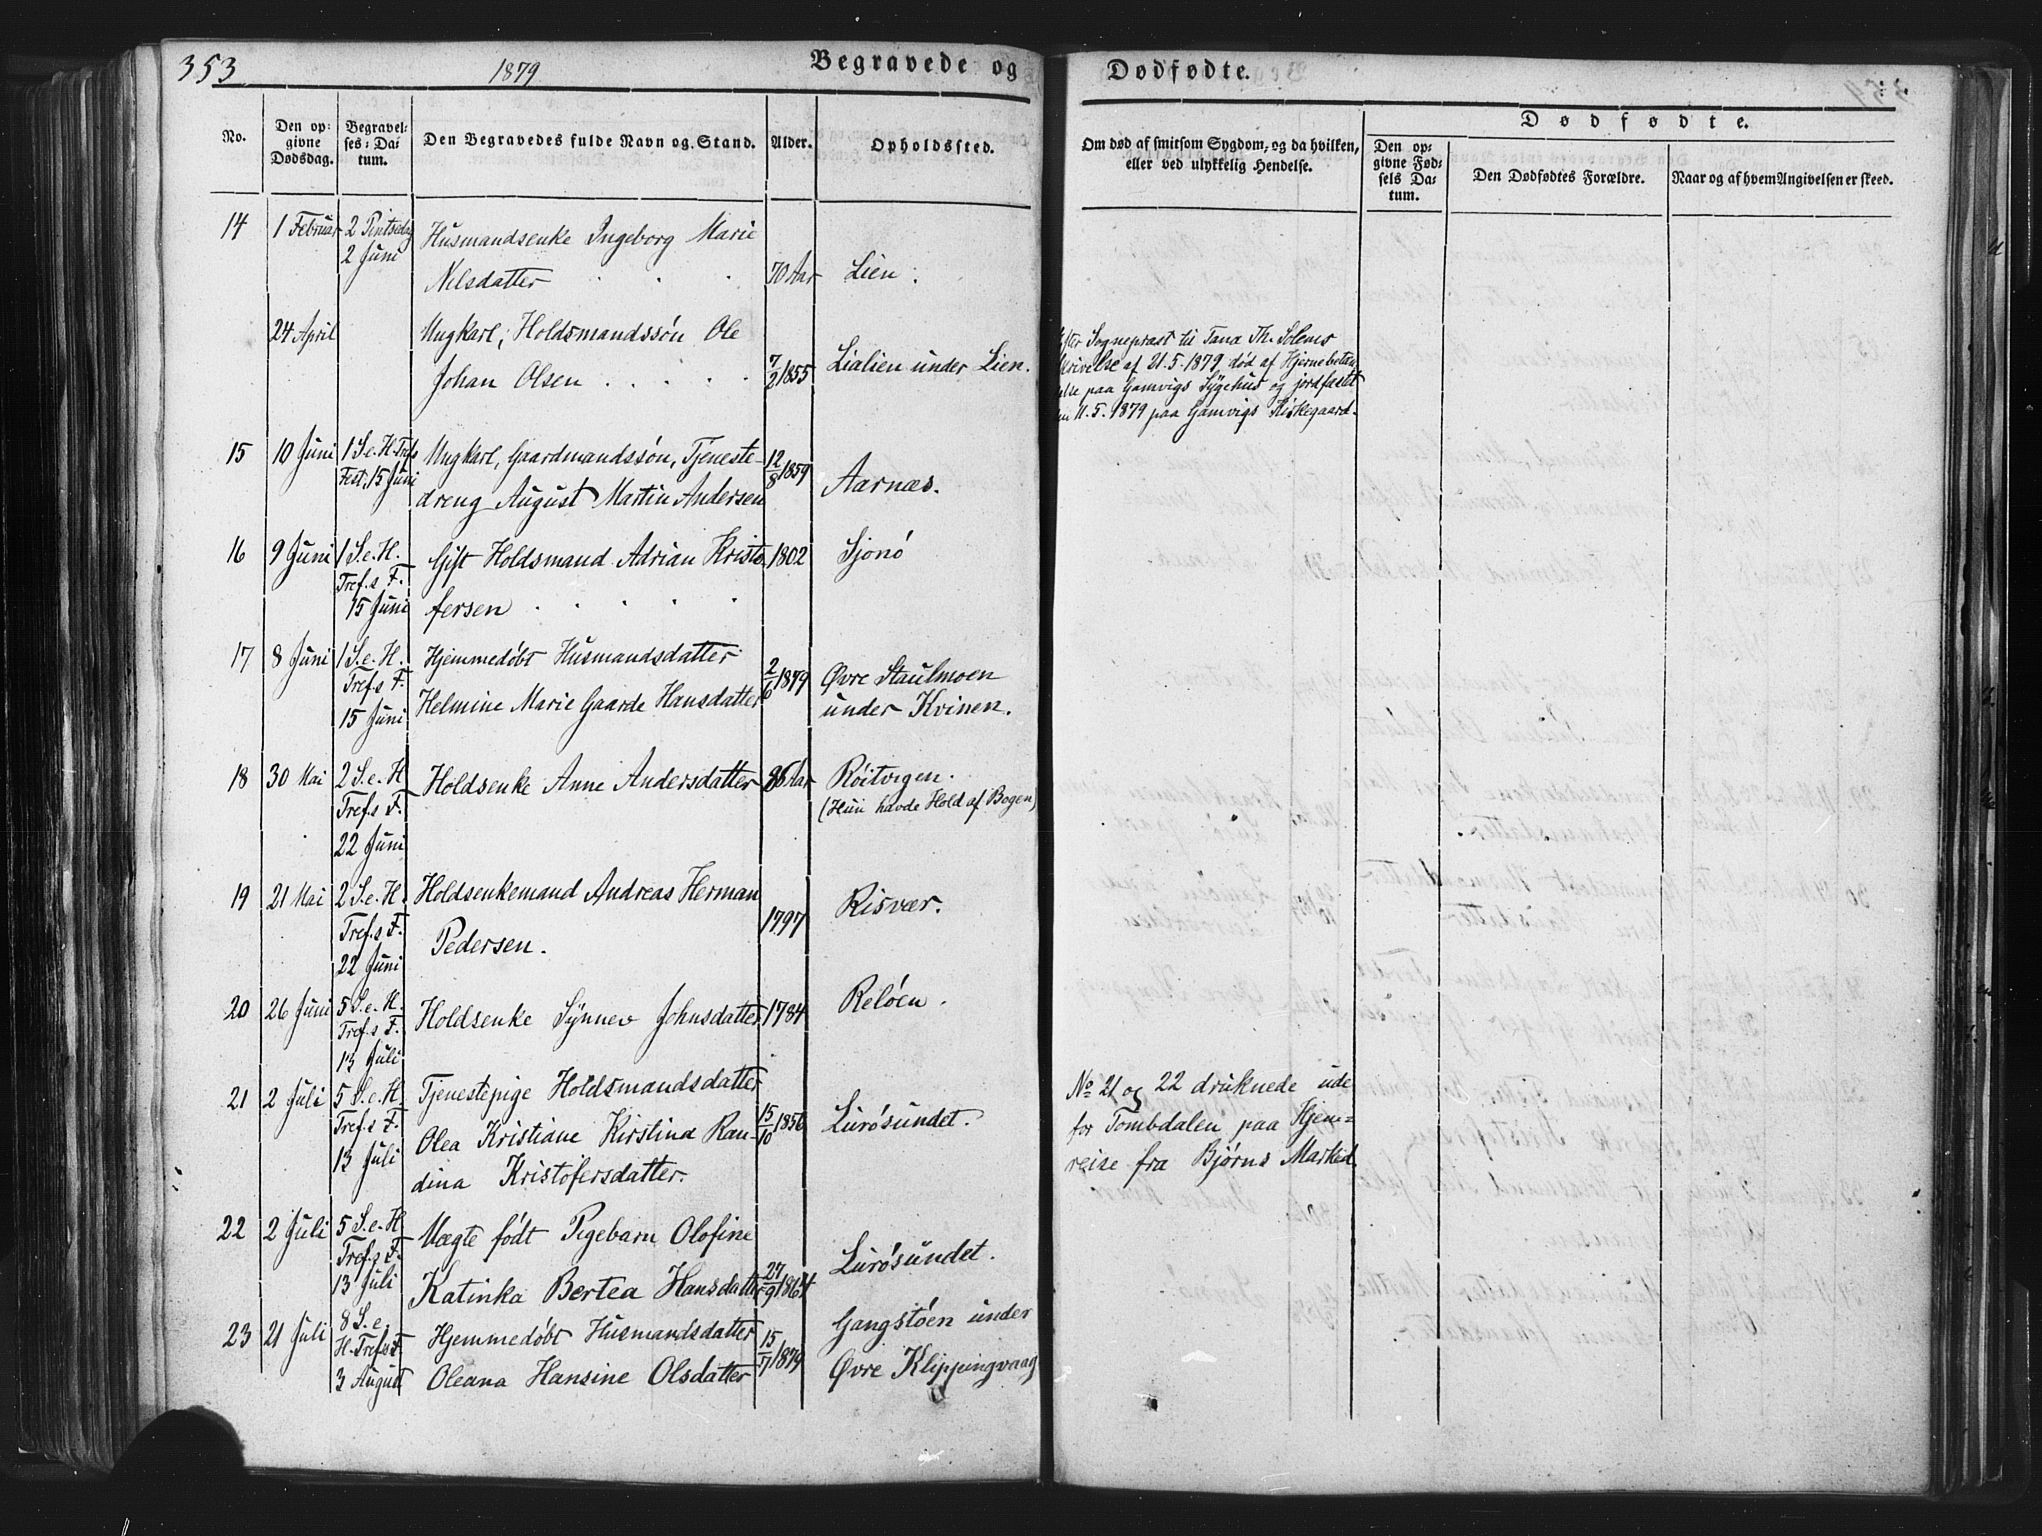 353
1879
Begravede og
Dødfødte.
No.
Den opgivne Dødsdag.
Begravelses-Datum.
Den Begravedes fulde Navn og Stand.
Alder.
Opholdssted.
Om død af smitsom Sygdom, og da hvilken, eller ved ulykkelig Hendelse.
Dødfødte.
Den opgivne Fødsels Datum.
Den Dødfødtes Forældre.
Naar og af hvem Angivelsen er skeed.
14 1 Februar 2 Pintsedag Husmandsenke Ingeborg Marie
2 Juni Nelsdatter 70 Aar Lien.
24 April Ungkarl, Holdsmandssøn Ole
Johan Olsen 7/2 1855 Lialien under Lien.
Sogneprast til Tana Th. Solems
af 21.5.1879, død af Hjernebetæn
paa Gamvigs Sygehus og jordfæstet
11.5.1879 paa Gamvigs Kirkegaard.
15 10 Juni 1 S.e.H.Trefs Ungkarl, Gaardmandssøn, Tjeneste- 12/8 1859 Aarnæs.
Fest. 15 Juni dreng August Martin Andersen
16 9 Juni 1 S.e.H. Gift Holdsmand Adrian Kristo 1802 Sjonø
Tref.s F.
15 Juni fersen
17 8 Juni 1 S.e.H. Hjemmedøbt Husmandsdatter
Tref.s F. 2/6 1879 Øvre Staulmoen
15 Juni Helmine Marie Gaarde Hansdatter under Kvinen.
18 30 Mai 2 S.e.H Holdsenke Anne Andersdatter 86 Aar Røitvigen.
Tref.s F. (Hun havde Hold af Bogen)
22 Juni
19 21 Mai 2 S.e.H. Holdsenkemand Andreas Herman 1797 Risvær.
Tref.s F. Pedersen.
22 Juni
20 26 Juni 5 S.e.H. Holdsenke Synnev Johnsdatter 1784 Reløen.
Tref.s F.
13 Juli
21 2 Juli 5 S.e.H Tjenestepige Holdsmandsdatter
Tref.s F. Olea Kristiane Kirstina Ran- 15/10 1856 Lurøsundet.
13 Juli dina Kristofersdatter.
No 21 og 22 druknede ude
for Tombdalen paa Hjem-
reise fra Bjørns Marked
22 2 Juli 5 S.e.H Uægte født Pigebarn Olofine
Tref.s F. Lurøsundet.
13 Juli Katinka Bertea Hansdatter 27/9 1864
23 21 Juli 8 S.e. Hjemmedøbt Husmandsdatter 15/7 1879 Gangstøen under
H.Tref.s F.
3 August Oleana Hansine Olsdatter Øvre Klippingvaag